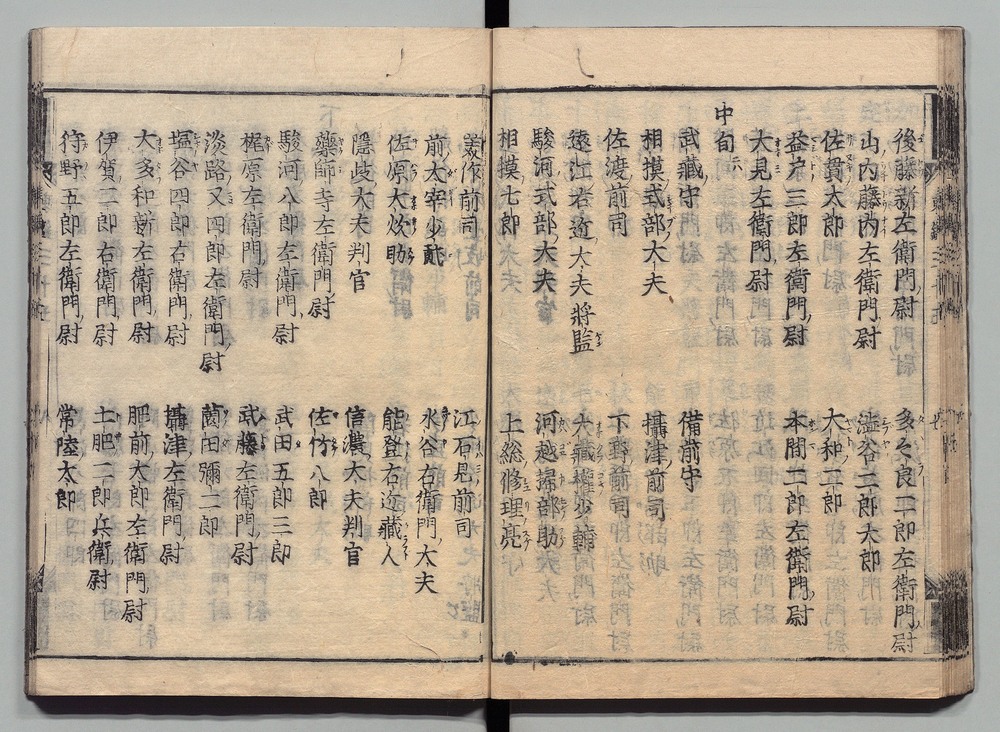 後藤新左衛門尉　多々良二郎左衛門尉
山内藤内左衛門尉　澁谷二郎太郎
佐貫太郎　大和二郎
益戸三郎左衛門尉　本間二郎左衛門尉
大見左衛門尉
中旬
武藏守　備前守
相摸式部大夫　攝津前司
佐渡前司　下野前司
遠江右近大夫將監　大藏權少輔
駿河式部大夫　河越掃部助
相摸七郎　上総修理亮
美作前司　江石見前司
前太宰少貳　水谷右衛門大夫
佐原大炊助　能登右近藏人
隱岐大夫判官　信濃大夫判官
藥師寺左衛門尉　佐竹八郎
駿河八郎左衛門尉　武田五郎三郎
梶原左衛門尉　武藤左衛門尉
淡路又四郎左衛門尉　薗田彌二郎
塩谷四郎左衛門尉　攝津左衛門尉
大多和新左衛門尉　肥前太郎左衛門尉
伊賀二郎右衛門尉　土肥二郎兵衛尉
狩野五郎左衛門尉　常陸太郎